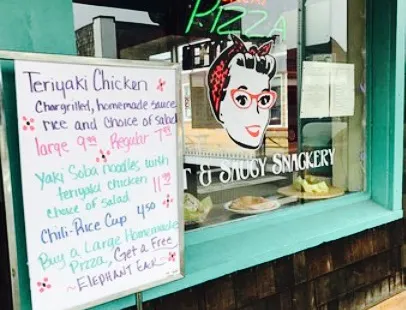 PIZZA
Teriyaki Chicken
Chargrilled, homemade sauce
rice and choice of salad
large 9.99 Regular 7.99
Yaki Soba Noodles with
teriyaki chicken 11.99
choice of salad
Chili-Rice Cup 4.50
Buy a Large Homemade
Pizza, Get a Free
~ELEPHANT EAR~
T & SAUCY SNACKERY